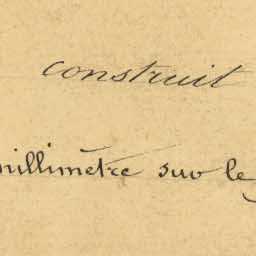 construit
millimètre sur le